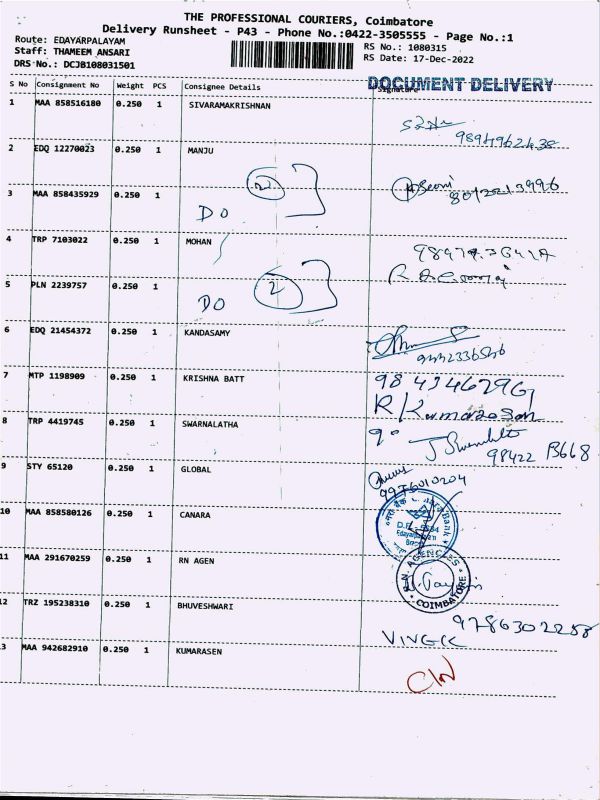 THE PROFESSIONAL COURIERS, Coimbatore
Delivery Runsheet - P43 - Phone No.:0422-3505555 - Page No.:1
Route: EDAYARPALAYAM
Staff: THAMEEM ANSARI
DRS No.: DCJB108031501
RS No.: 1080315
RS Date: 17-Dec-2022
DOCUMENT DELIVERY
S No Consignment No Weight PCS Consignee Details Signature
1 MAA 858516180 0.250 1 SIVARAMAKRISHNAN
2 EDQ 12270023 0.250 1 MANJU
2
3 MAA 858435929 0.250 1
DO
4 TRP 7103022 0.250 1 MOHAN
2
5 PLN 2239757 0.250 1
DO
6 EDQ 21454372 0.250 1 KANDASAMY
7 MTP 1198909 0.250 1 KRISHNA BATT
R/Kumarasan
8 TRP 4419745 0.250 1 SWARNALATHA
9 STY 65120 0.250 1 GLOBAL
9976010204
10 MAA 858580126 0.250 1 CANARA
11 MAA 291670259 0.250 1 RN AGEN
R.N. AGENCIES
COIMBATORE
12 TRZ 195238310 0.250 1 BHUVESHWARI
9786302258
13 MAA 942682910 0.250 1 KUMARASEN